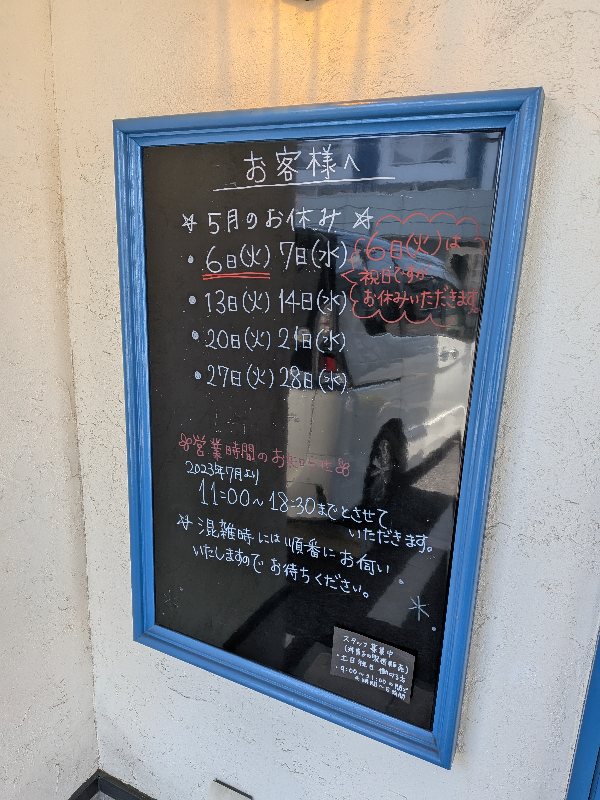 お客様へ
☆ 5月のお休み ☆
・6日(火) 7日(水)
6日(火)は
祝日ですが
お休みいただきます
・13日(火) 14日(水)
・20日(火) 21日(水)
・27日(火) 28日(水)
営業時間のお知らせ
2023年7月より
11:00～18:30までとさせて
いただきます。
☆ 混雑時には順番にお伺い
いたしますので お待ちください。
スタッフ募集中
土日祝日 働ける方